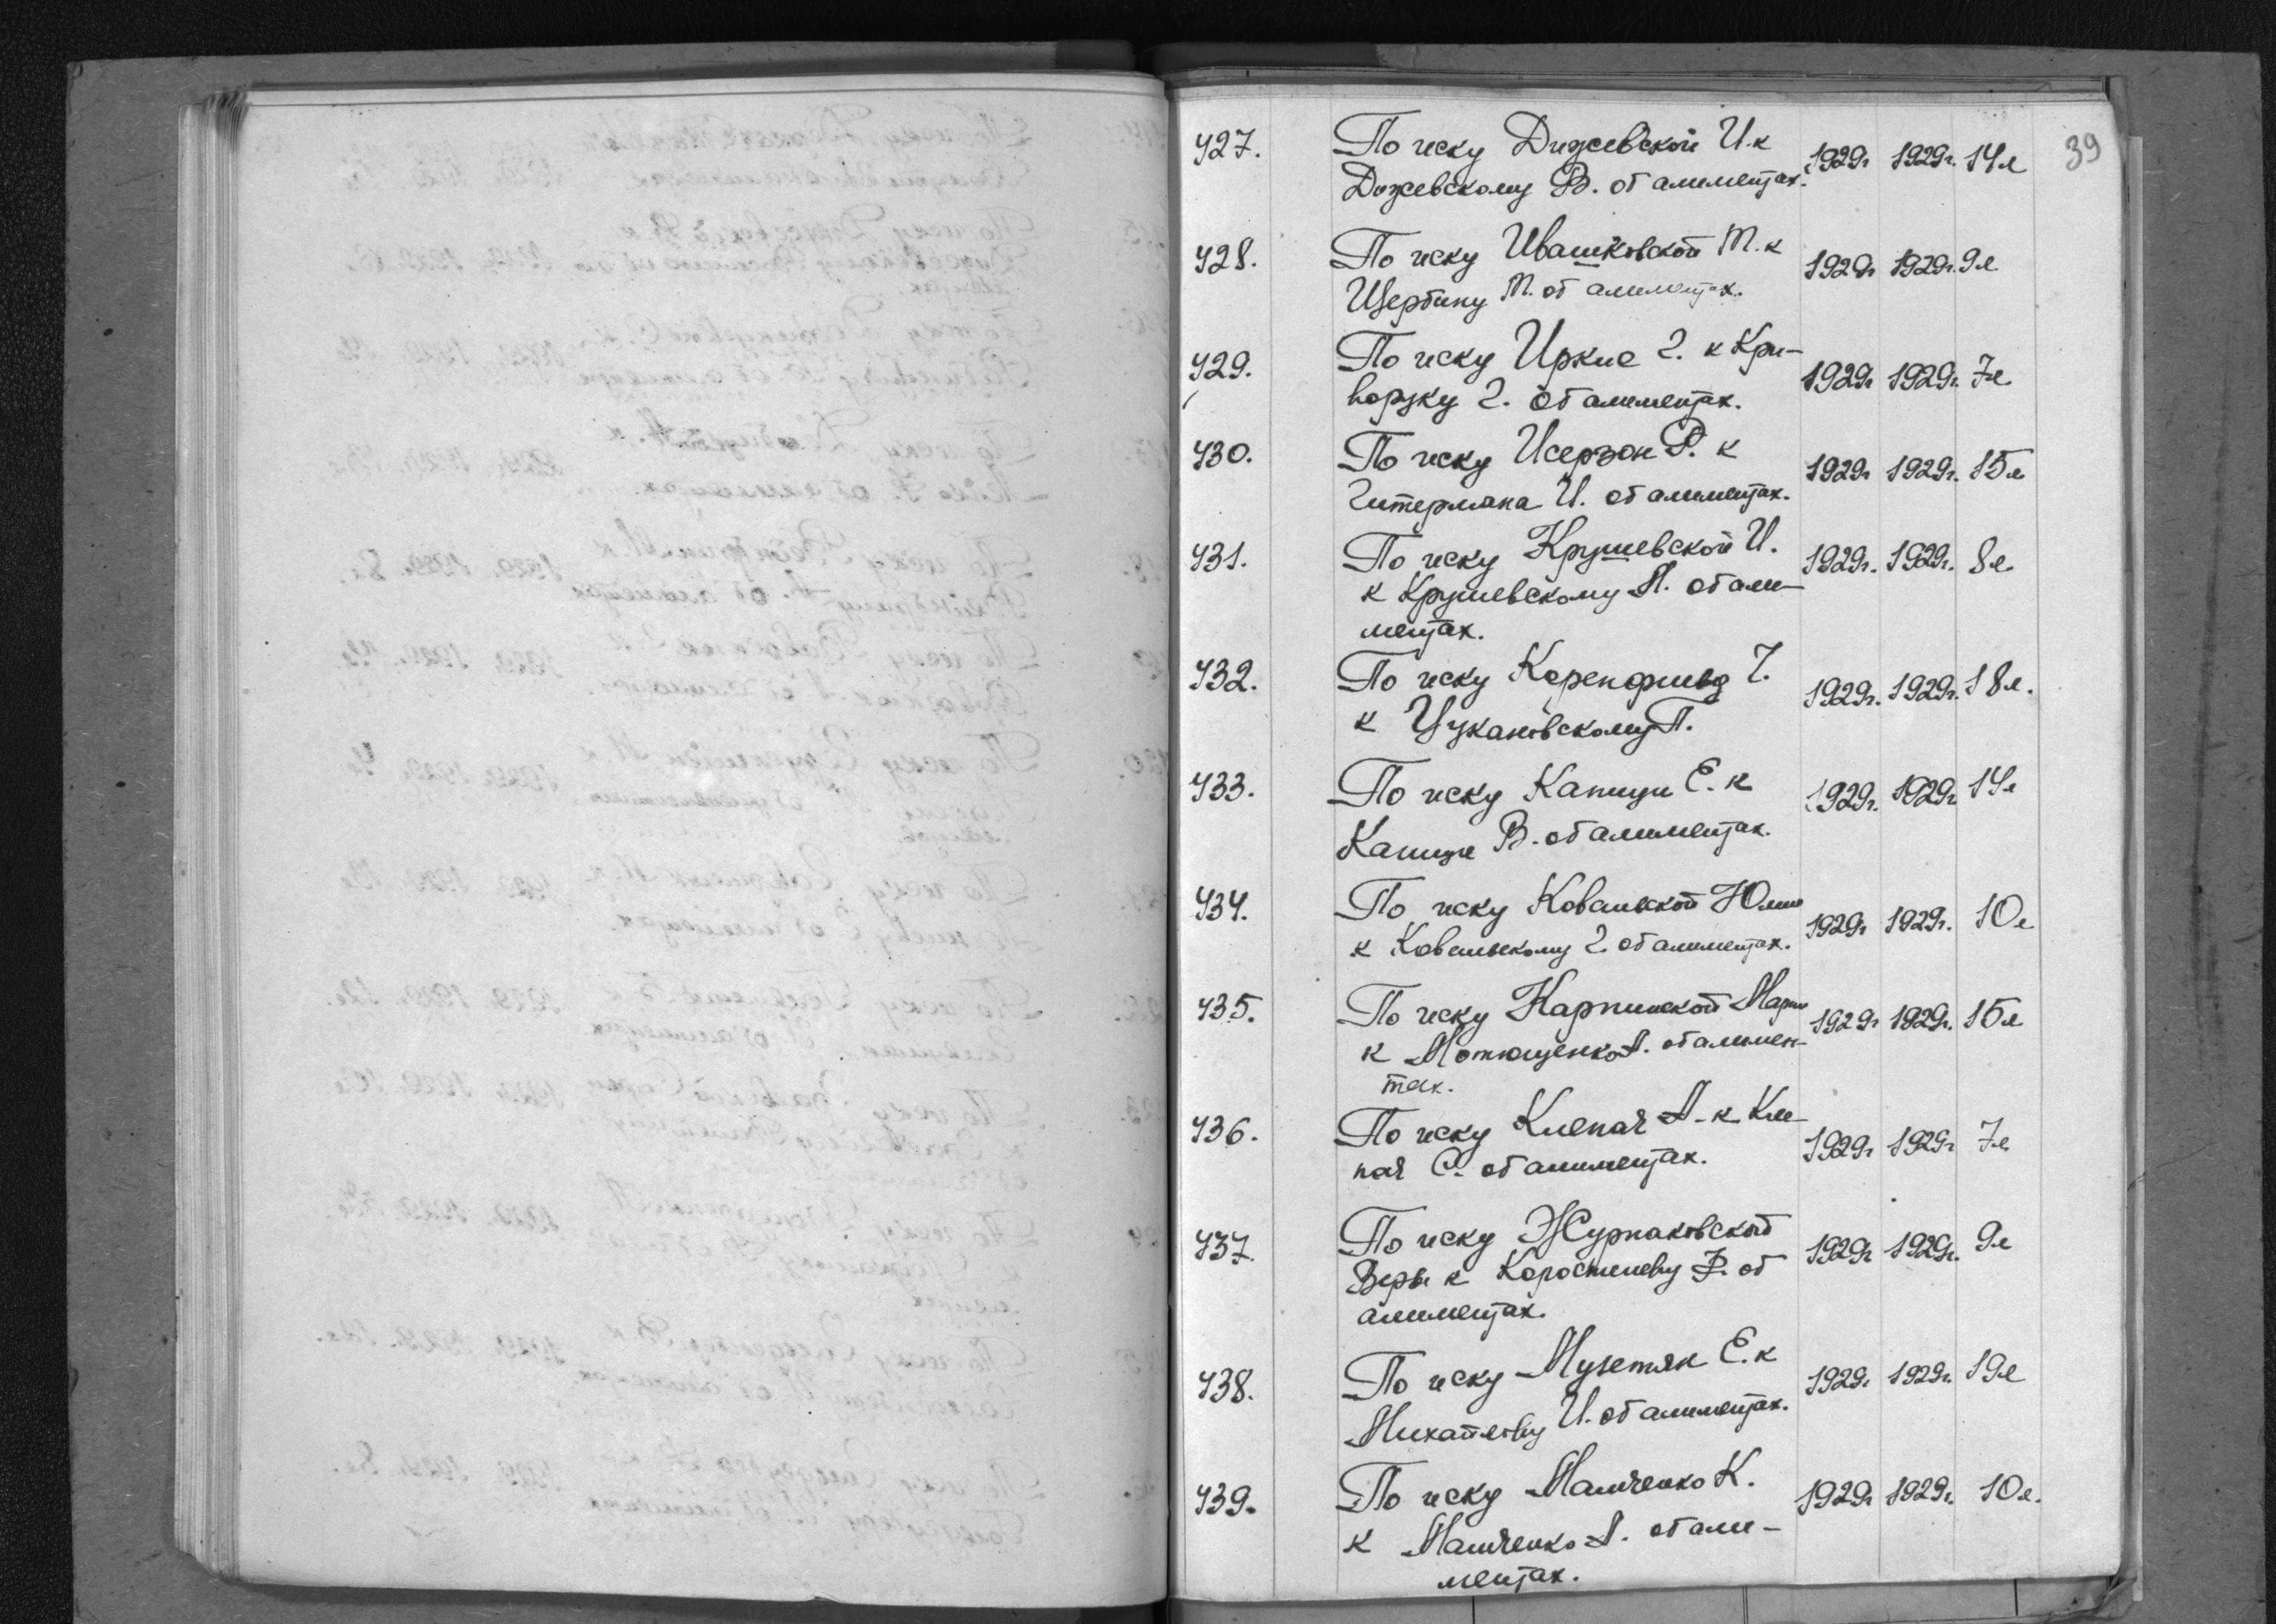 39
427. По иску Дижевской И. к 1929г 1929г. 14л
Дижевскому В. об алиментах.
428. По иску Ивашковской М. к 1929г 1929г. 9л.
Щербину М. об алиментах.
429. По иску Иркис Г. к Кри- 1929г 1929г. 7л.
воруку Г. об алиментах.
430. По иску Исерзон Р. к 1929г 1929г. 15л
Гитермана И. об алиментах.
431. По иску Крушевской И. 1929г. 1929г. 8л.
к Крушевскому А. об али-
ментах.
432. По иску Коренфильд Г. 1929г. 1929г. 18л.
к Цукановскому П.
433. По иску Капици Е. к 1929г. 1929г 14л
Капице В. об алиментах.
434. По иску Ковальской Юлии 1929г 1929г. 10л
к Ковальскому Г. об алиментах.
435. По иску Карпинской Марии 1929г 1929г. 15л
к Мотющенко А. об алимен-
тах.
436. По иску Клепач А. к Кле- 1929г 1929г 7л
пач С. об алиментах.
437. По иску Журнаковской 1929г 1929г. 9л
Веры к Коростилеву Ф. об
алиментах.
438. По иску Музетяк Е. к 1929г 1929г. 19л
Михайлову И. об алиментах.
439. По иску Мамченко К. 1929г 1929г. 10л.
к Мамченко А. об али-
ментах.